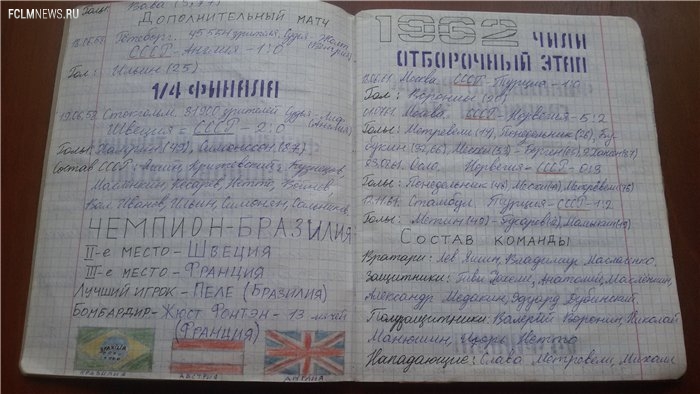 FCLMNEWS.RU
Дополнительный матч
Гетеборг. зрителей. Судья -
СССР - Англия - 1:0
Гол: Ильин (
1/4 ФИНАЛА
19.06.58. Стокгольм. 31900 зрителей Судья -
Швеция - СССР - 2:0 (Англия)
Голы: Хамрин (49), Симонссон (87)
Состав СССР - Яшин, Крижевский, Кузнецов,
Масленкин, Кесарев, Нетто,
Вал. Иванов, Ильин, Симонян, Сальников
ЧЕМПИОН-БРАЗИЛИЯ
II-е место - Швеция
III-е место - Франция
Лучший игрок - Пеле (Бразилия)
Бомбардир - Жюст Фонтэн - 13 мячей
(Франция)
БРАЗИЛИЯ
АВСТРИЯ
АНГЛИЯ
1962 ЧИЛИ
ОТБОРОЧНЫЙ ЭТАП
Москва. СССР - Турция - 1:0
Гол: Воронин
Москва. СССР - Норвегия - 5:2
Голы: Метревели Понедельник
Месхи
Осло. Норвегия - СССР - 0:3
Голы: Понедельник Месхи Метревели
Стамбул. Турция - СССР - 1:2
Голы:
Состав команды
Вратари: Лев Яшин, Владимир Маслаченко.
Защитники: Гиви Чохели, Анатолий Масленкин,
Александр Медакин, Эдуард Дубинский.
Полузащитники: Валерий Воронин, Николай
Манюшин, Игорь Нетто
Нападающие: Слава Метревели, Михаил